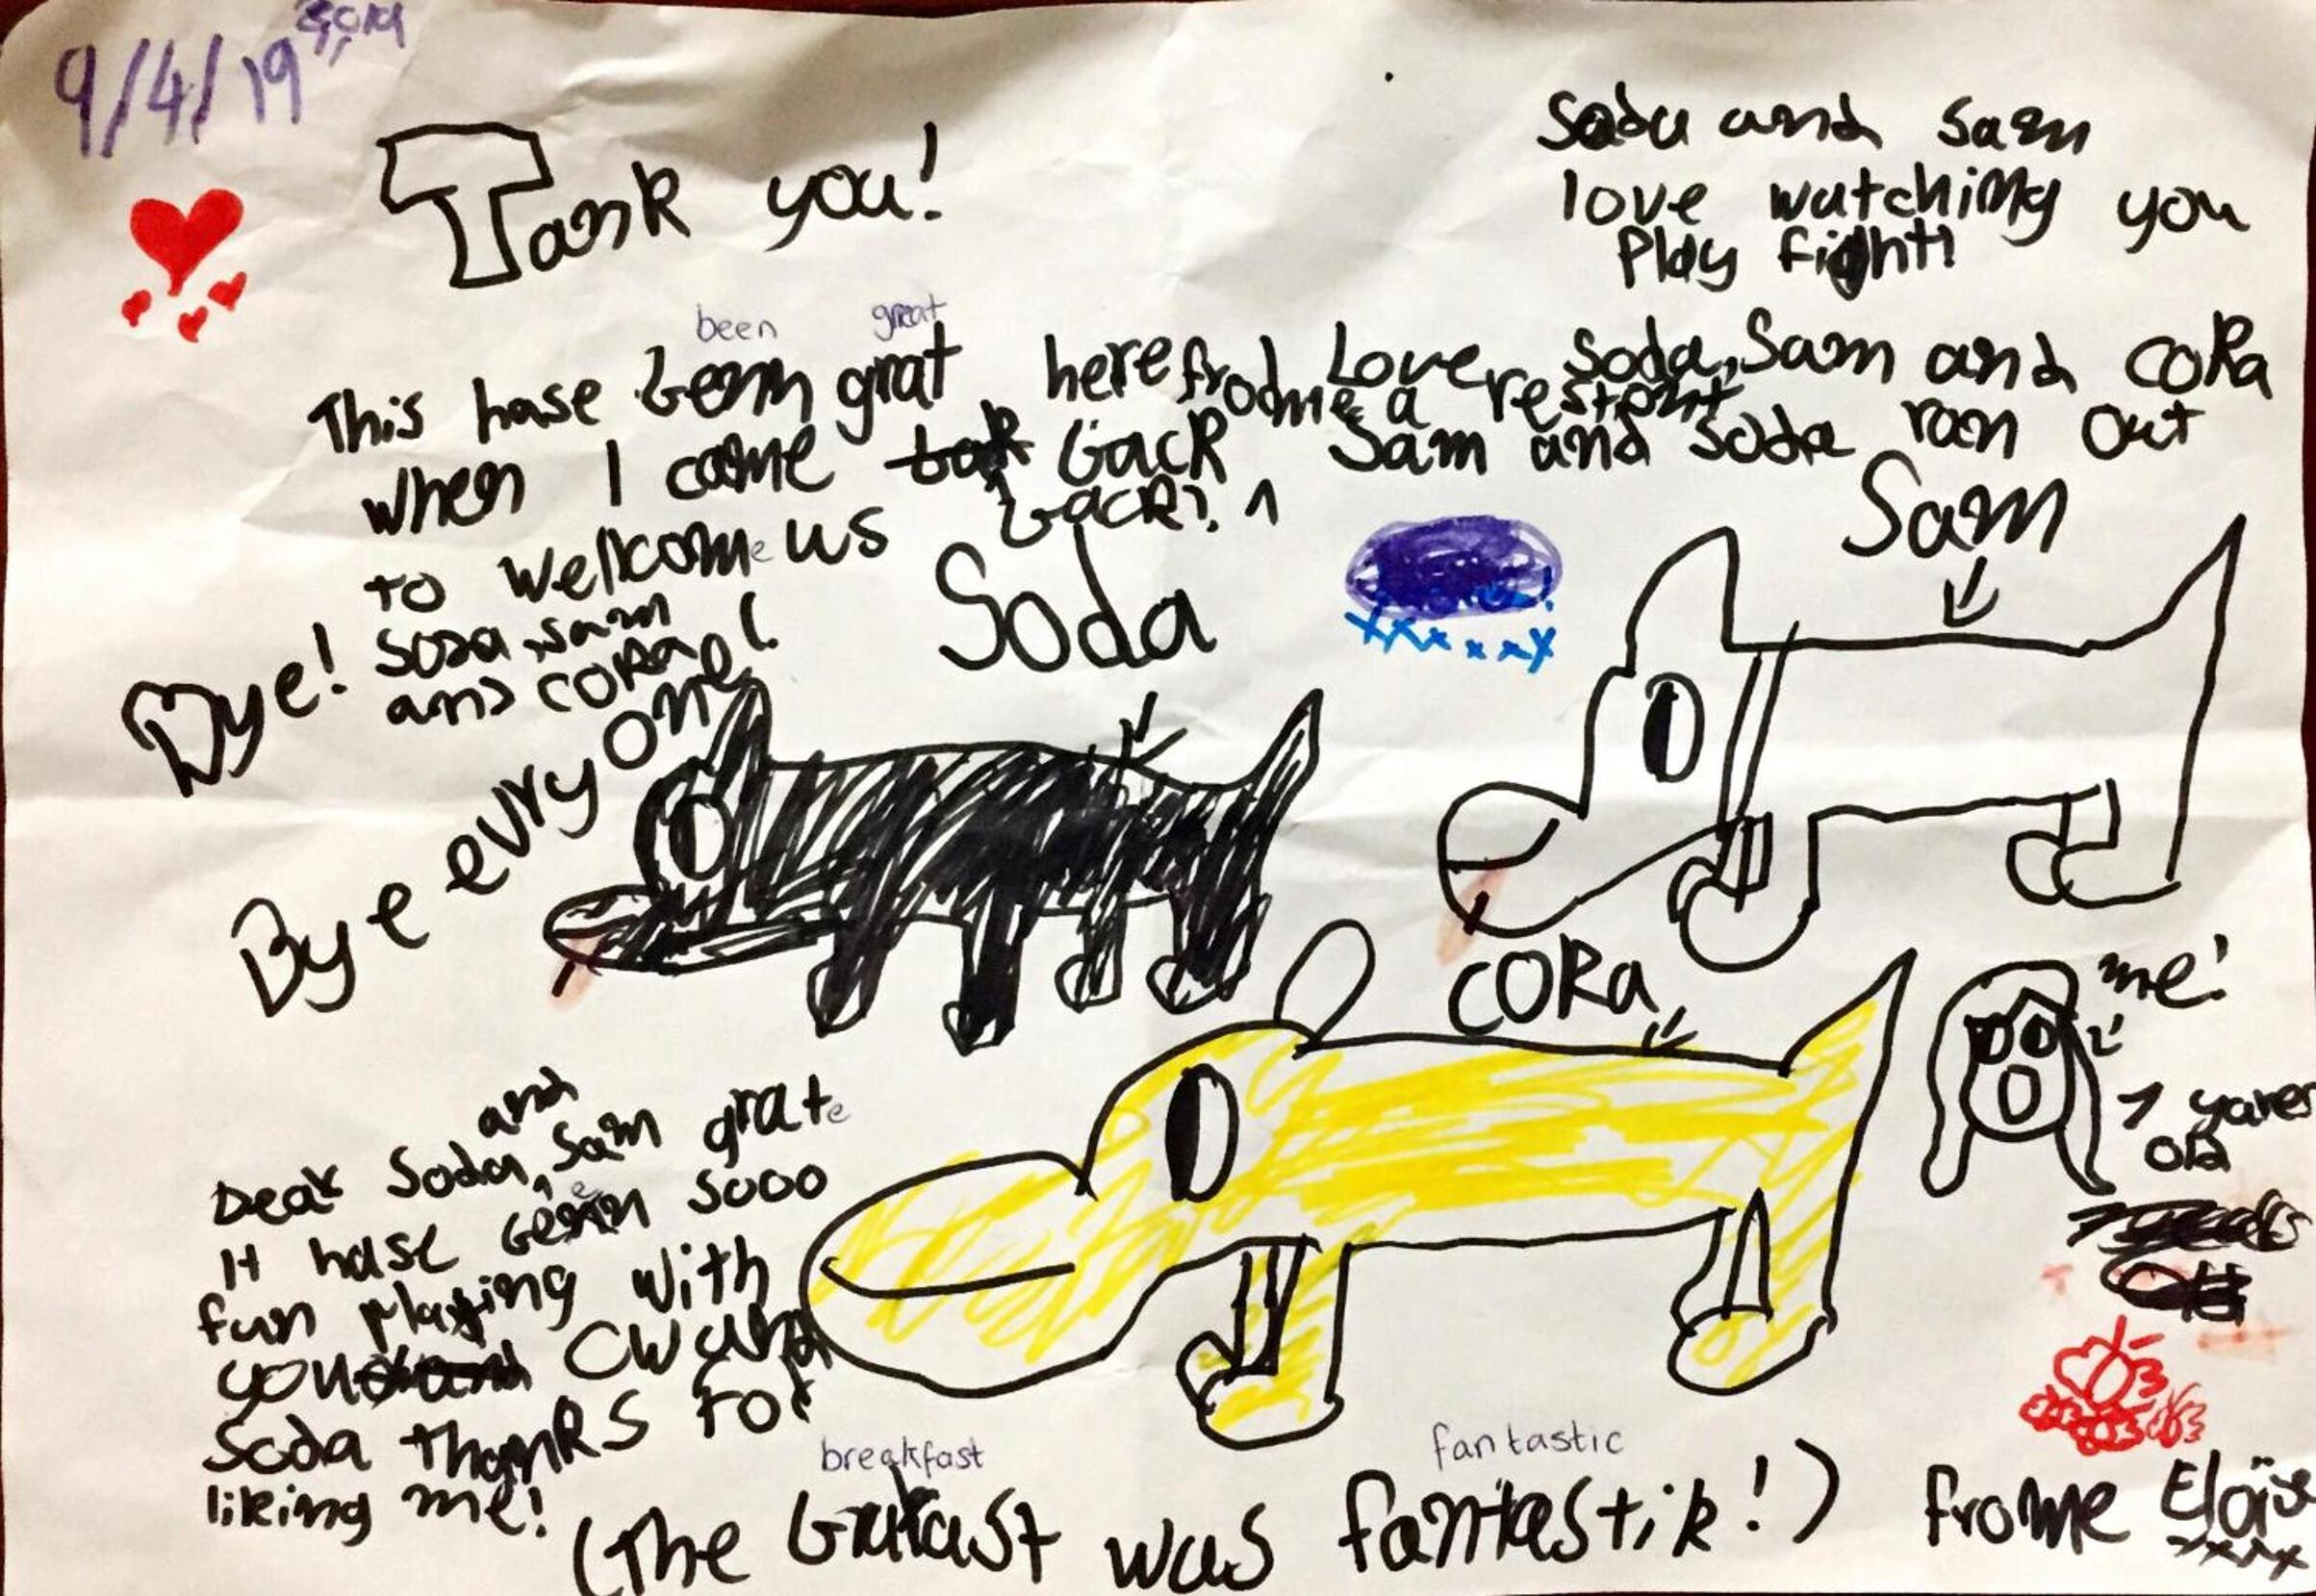 9/4/19
Tank you!
Soda and Sam
love watching you
Play fight!
been great
This hase been grat here Love Soda, Sam and CORa
frome a
when I came back Sam and Soda ran out
back? ^
to wellcome us
Soda, Sam
and CORa
Bye!
Bye evry one!
Soda
Sam
CORa
me!
7 yares
old
and
Dear Soda, Sam grate
It hase been sooo
fun playing with
you
Soda thanks for
liking me!
breakfast
fantastic
(The was fantastik!) frome Eloïse